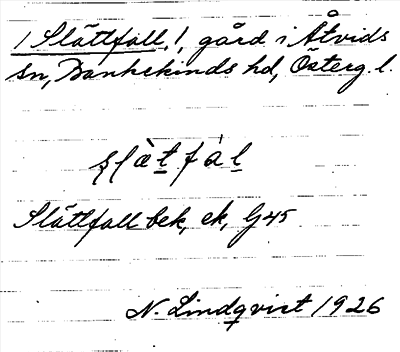 / Slättfall, /, gård i Åtvids
sn, Bankekinds hd, Österg. l.
slätfàl
Slättfall bek, ek, G45
N. Lindqvist 1926